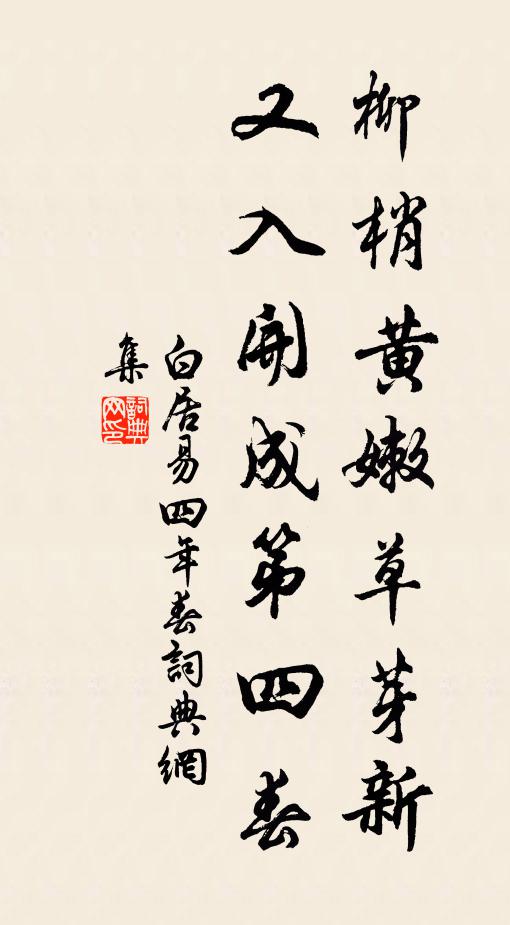 柳梢黄嫩草芽新
又入開成第四春
白居易四年春詞典網
集
詞典
网印